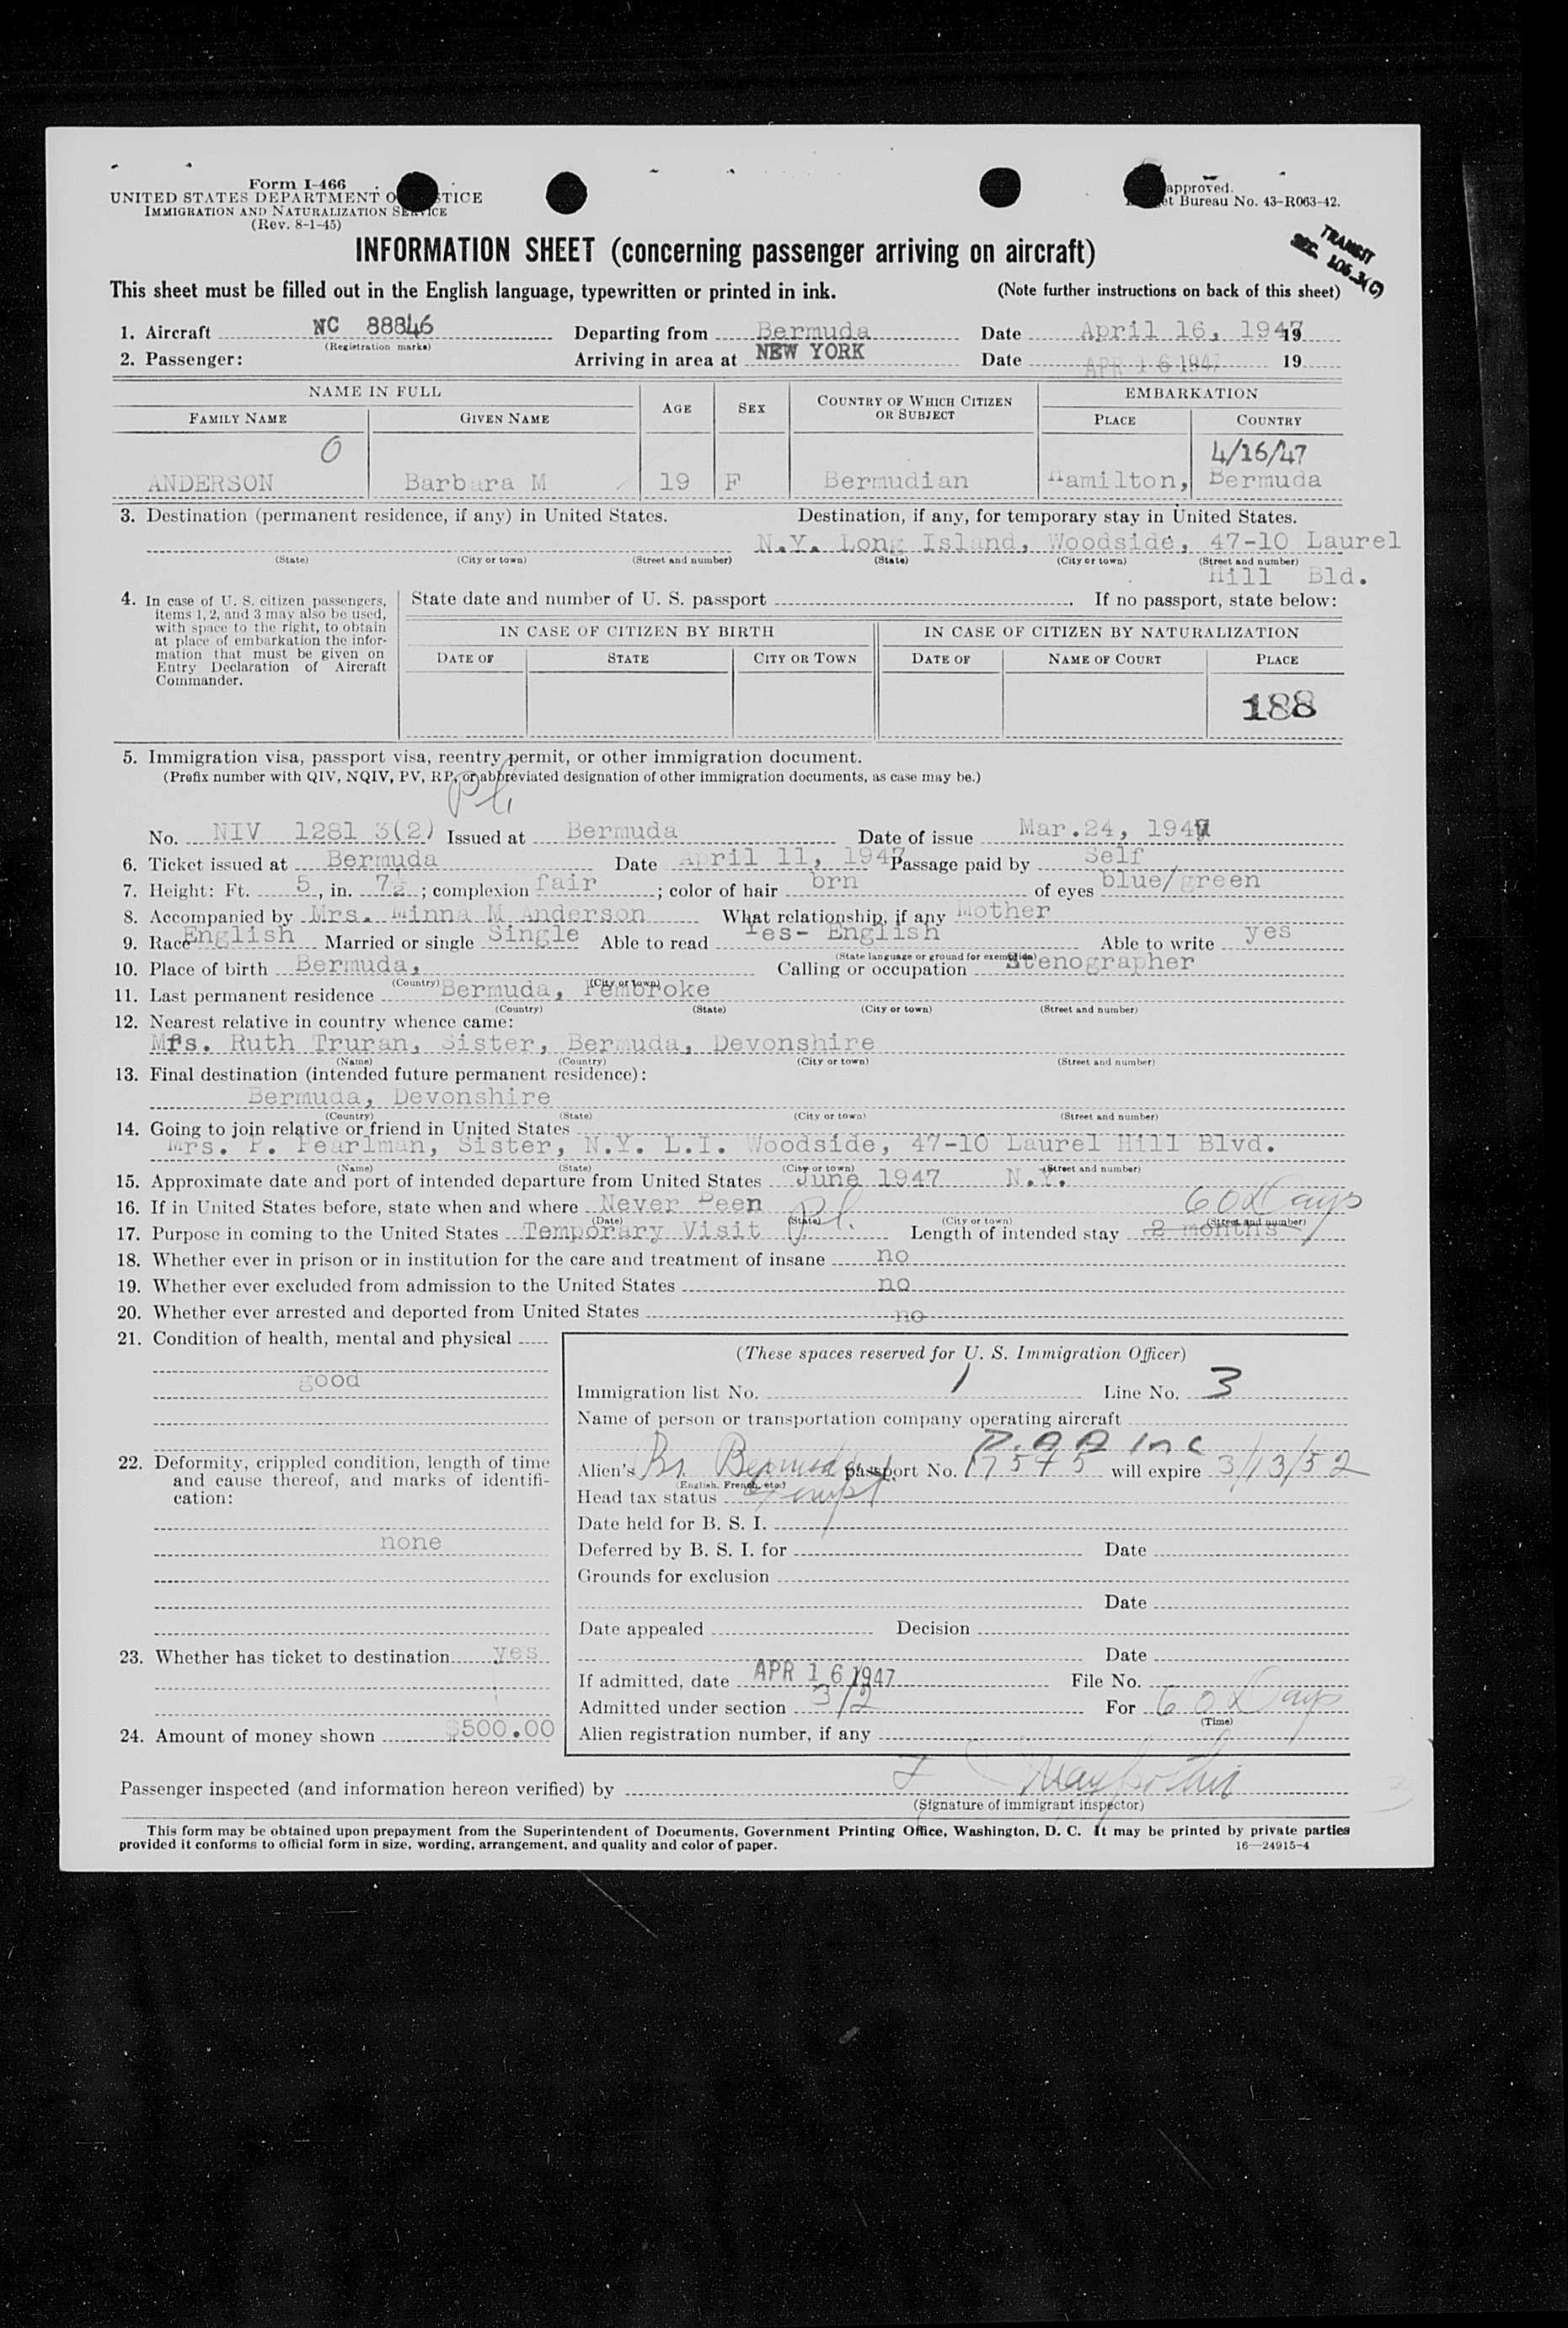 Form I-466
UNITED STATES DEPARTMENT O STICE
IMMIGRATION AND NATURALIZATION SERVICE
(Rev. 8-1-45)
approved.
et Bureau No. 43-R063-42.
TRANSIT
SEC. 105.3(C)
INFORMATION SHEET (concerning passenger arriving on aircraft)
This sheet must be filled out in the English language, typewritten or printed in ink. (Note further instructions on back of this sheet)
1. Aircraft NC 88846 Departing from Bermuda Date April 16, 1947 19
(Registration marks)
2. Passenger: Arriving in area at NEW YORK Date APR 16 1947 19
NAME IN FULL AGE SEX COUNTRY OF WHICH CITIZEN OR SUBJECT EMBARKATION
FAMILY NAME GIVEN NAME PLACE COUNTRY
0 4/16/47
ANDERSON Barbara M 19 F Bermudian Hamilton, Bermuda
3. Destination (permanent residence, if any) in United States. Destination, if any, for temporary stay in United States.
N.Y. Long Island, Woodside, 47-10 Laurel
(State) (City or town) (Street and number) (State) (City or town) (Street and number)
Hill Bld.
4. In case of U. S. citizen passengers, items 1, 2, and 3 may also be used, with space to the right, to obtain at place of embarkation the information that must be given on Entry Declaration of Aircraft Commander.
State date and number of U. S. passport . If no passport, state below:
IN CASE OF CITIZEN BY BIRTH IN CASE OF CITIZEN BY NATURALIZATION
DATE OF STATE CITY OR TOWN DATE OF NAME OF COURT PLACE
188
5. Immigration visa, passport visa, reentry permit, or other immigration document.
(Prefix number with QIV, NQIV, PV, RP, or abbreviated designation of other immigration documents, as case may be.)
Pl
No. NIV 1281 3(2) Issued at Bermuda Date of issue Mar.24, 1947
6. Ticket issued at Bermuda Date April 11, 1947 Passage paid by Self
7. Height: Ft. 5, in. 7½; complexion fair; color of hair brn of eyes blue/green
8. Accompanied by Mrs. Minna M Anderson What relationship, if any Mother
9. Race English Married or single Single Able to read Yes- English Able to write yes
(State language or ground for exemption)
10. Place of birth Bermuda, Calling or occupation Stenographer
(Country) (City or town)
11. Last permanent residence Bermuda, Pembroke
(Country) (State) (City or town) (Street and number)
12. Nearest relative in country whence came:
Mrs. Ruth Truran, Sister, Bermuda, Devonshire
(Name) (Country) (City or town) (Street and number)
13. Final destination (intended future permanent residence):
Bermuda, Devonshire
(Country) (State) (City or town) (Street and number)
14. Going to join relative or friend in United States
Mrs. P. Pearlman, Sister, N.Y. L.I. Woodside, 47-10 Laurel Hill Blvd.
(Name) (State) (City or town) (Street and number)
15. Approximate date and port of intended departure from United States June 1947 N.Y.
16. If in United States before, state when and where Never Been Pl. 60 Days
(Date) (State) (City or town) (Street and number)
17. Purpose in coming to the United States Temporary Visit Length of intended stay 2 months
18. Whether ever in prison or in institution for the care and treatment of insane no
19. Whether ever excluded from admission to the United States no
20. Whether ever arrested and deported from United States no
21. Condition of health, mental and physical
good
22. Deformity, crippled condition, length of time and cause thereof, and marks of identification:
none
23. Whether has ticket to destination yes
24. Amount of money shown $500.00
(These spaces reserved for U. S. Immigration Officer)
Immigration list No. 1 Line No. 3
Name of person or transportation company operating aircraft
P.A.A Inc
Alien's Br. Bermuda passport No. 17545 will expire 3/13/52
(English, French, etc.)
Head tax status Exempt
Date held for B. S. I.
Deferred by B. S. I. for Date
Grounds for exclusion
Date
Date appealed Decision
Date
If admitted, date APR 16 1947 File No.
Admitted under section 3/2 For 60 Days
(Time)
Alien registration number, if any
Passenger inspected (and information hereon verified) by
(Signature of immigrant inspector)
This form may be obtained upon prepayment from the Superintendent of Documents, Government Printing Office, Washington, D. C. It may be printed by private parties
provided it conforms to official form in size, wording, arrangement, and quality and color of paper. 16—24915-4